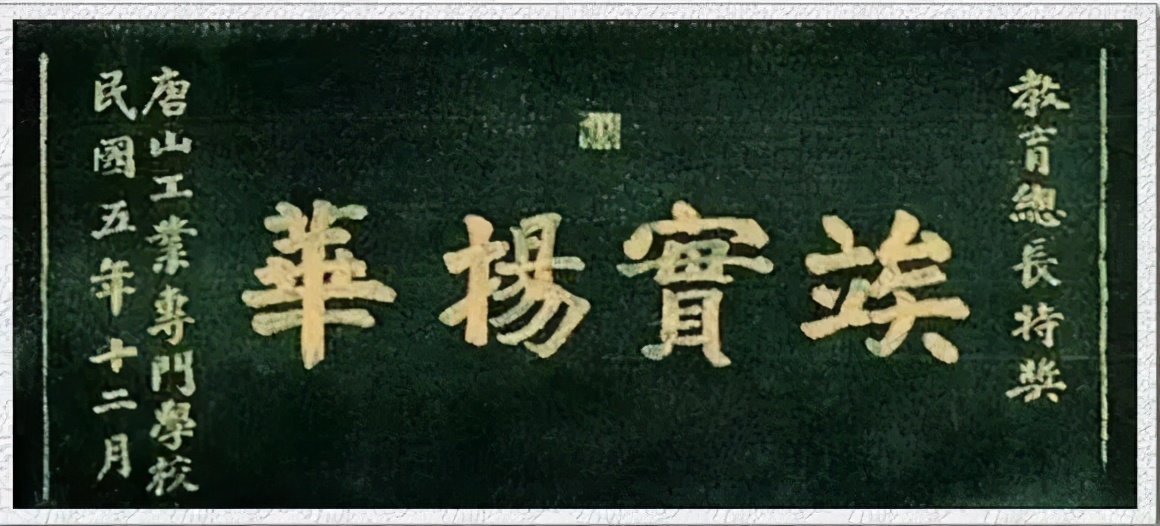 教育總長特獎
竢實揚華
唐山工業專門學校
民國五年十二月